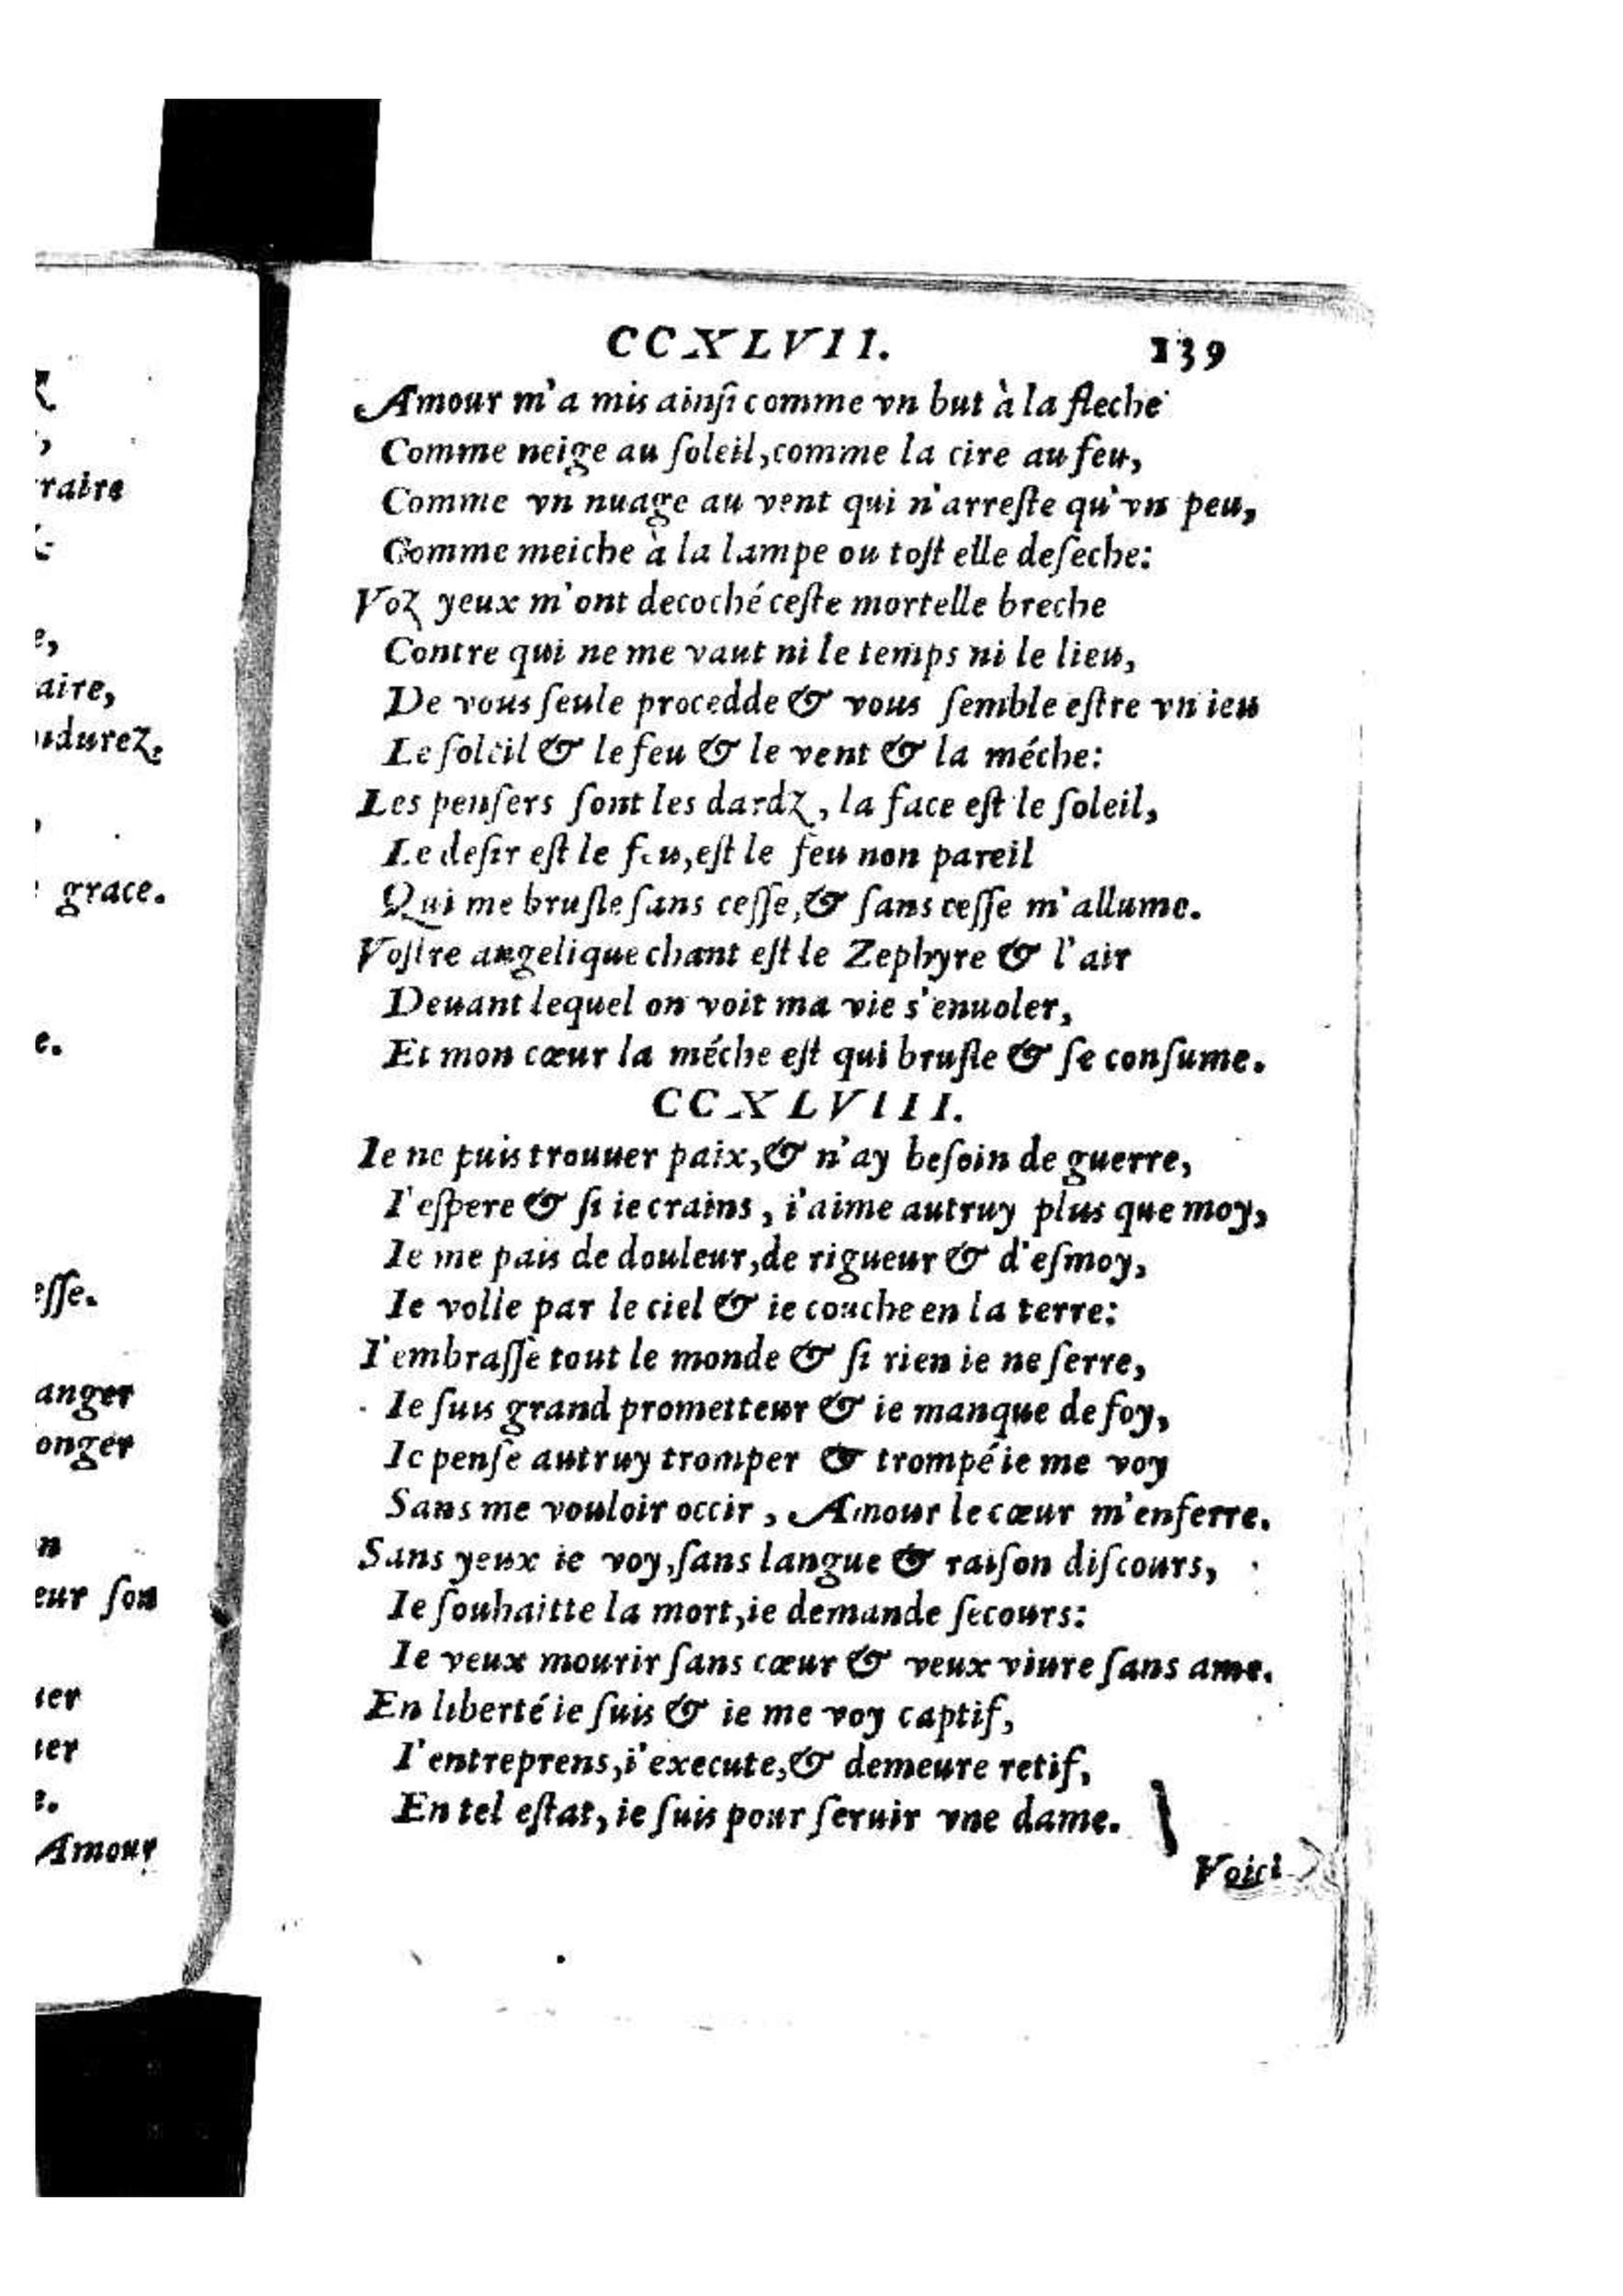 CCXLVII. 139
Amour m'a mis ainſi comme vn but à la fleche
Comme neige au ſoleil, comme la cire au feu,
Comme vn nuage au vent qui n'arreſte qu'vn peu,
Comme meiche à la lampe ou toſt elle deſeche:
Voz yeux m'ont decoché ceſte mortelle breche
Contre qui ne me vaut ni le temps ni le lieu,
De vous ſeule procedde & vous ſemble eſtre vn ieu
Le ſoleil & le feu & le vent & la méche:
Les penſers ſont les dardz, la face eſt le ſoleil,
Le deſir eſt le feu, eſt le feu non pareil
Qui me bruſle ſans ceſſe, & ſans ceſſe m'allume.
Voſtre angelique chant eſt le Zephyre & l'air
Deuant lequel on voit ma vie s'enuoler,
Et mon cœur la méche eſt qui bruſle & ſe conſume.
CCXLVIII.
Ie ne puis trouuer paix, & n'ay beſoin de guerre,
I'eſpere & ſi ie crains, i'aime autruy plus que moy,
Ie me pais de douleur, de rigueur & d'eſmoy,
Ie volle par le ciel & ie couche en la terre:
I'embraſſe tout le monde & ſi rien ie ne ſerre,
Ie ſuis grand prometteur & ie manque de foy,
Ie penſe autruy tromper & trompé ie me voy
Sans me vouloir occir, Amour le cœur m'enferre.
Sans yeux ie voy, ſans langue & raiſon diſcours,
Ie ſouhaitte la mort, ie demande ſecours:
Ie veux mourir ſans cœur & veux viure ſans ame.
En liberté ie ſuis & ie me voy captif,
I'entreprens, i'execute, & demeure retif,
En tel eſtat, ie ſuis pour ſeruir vne dame.
Voici
raire
e,
aire,
grace.
e.
eſſe.
anger
onger
n
eur ſon
er
er
e.
Amour